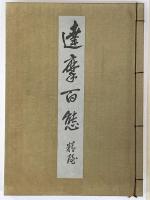 達摩百態